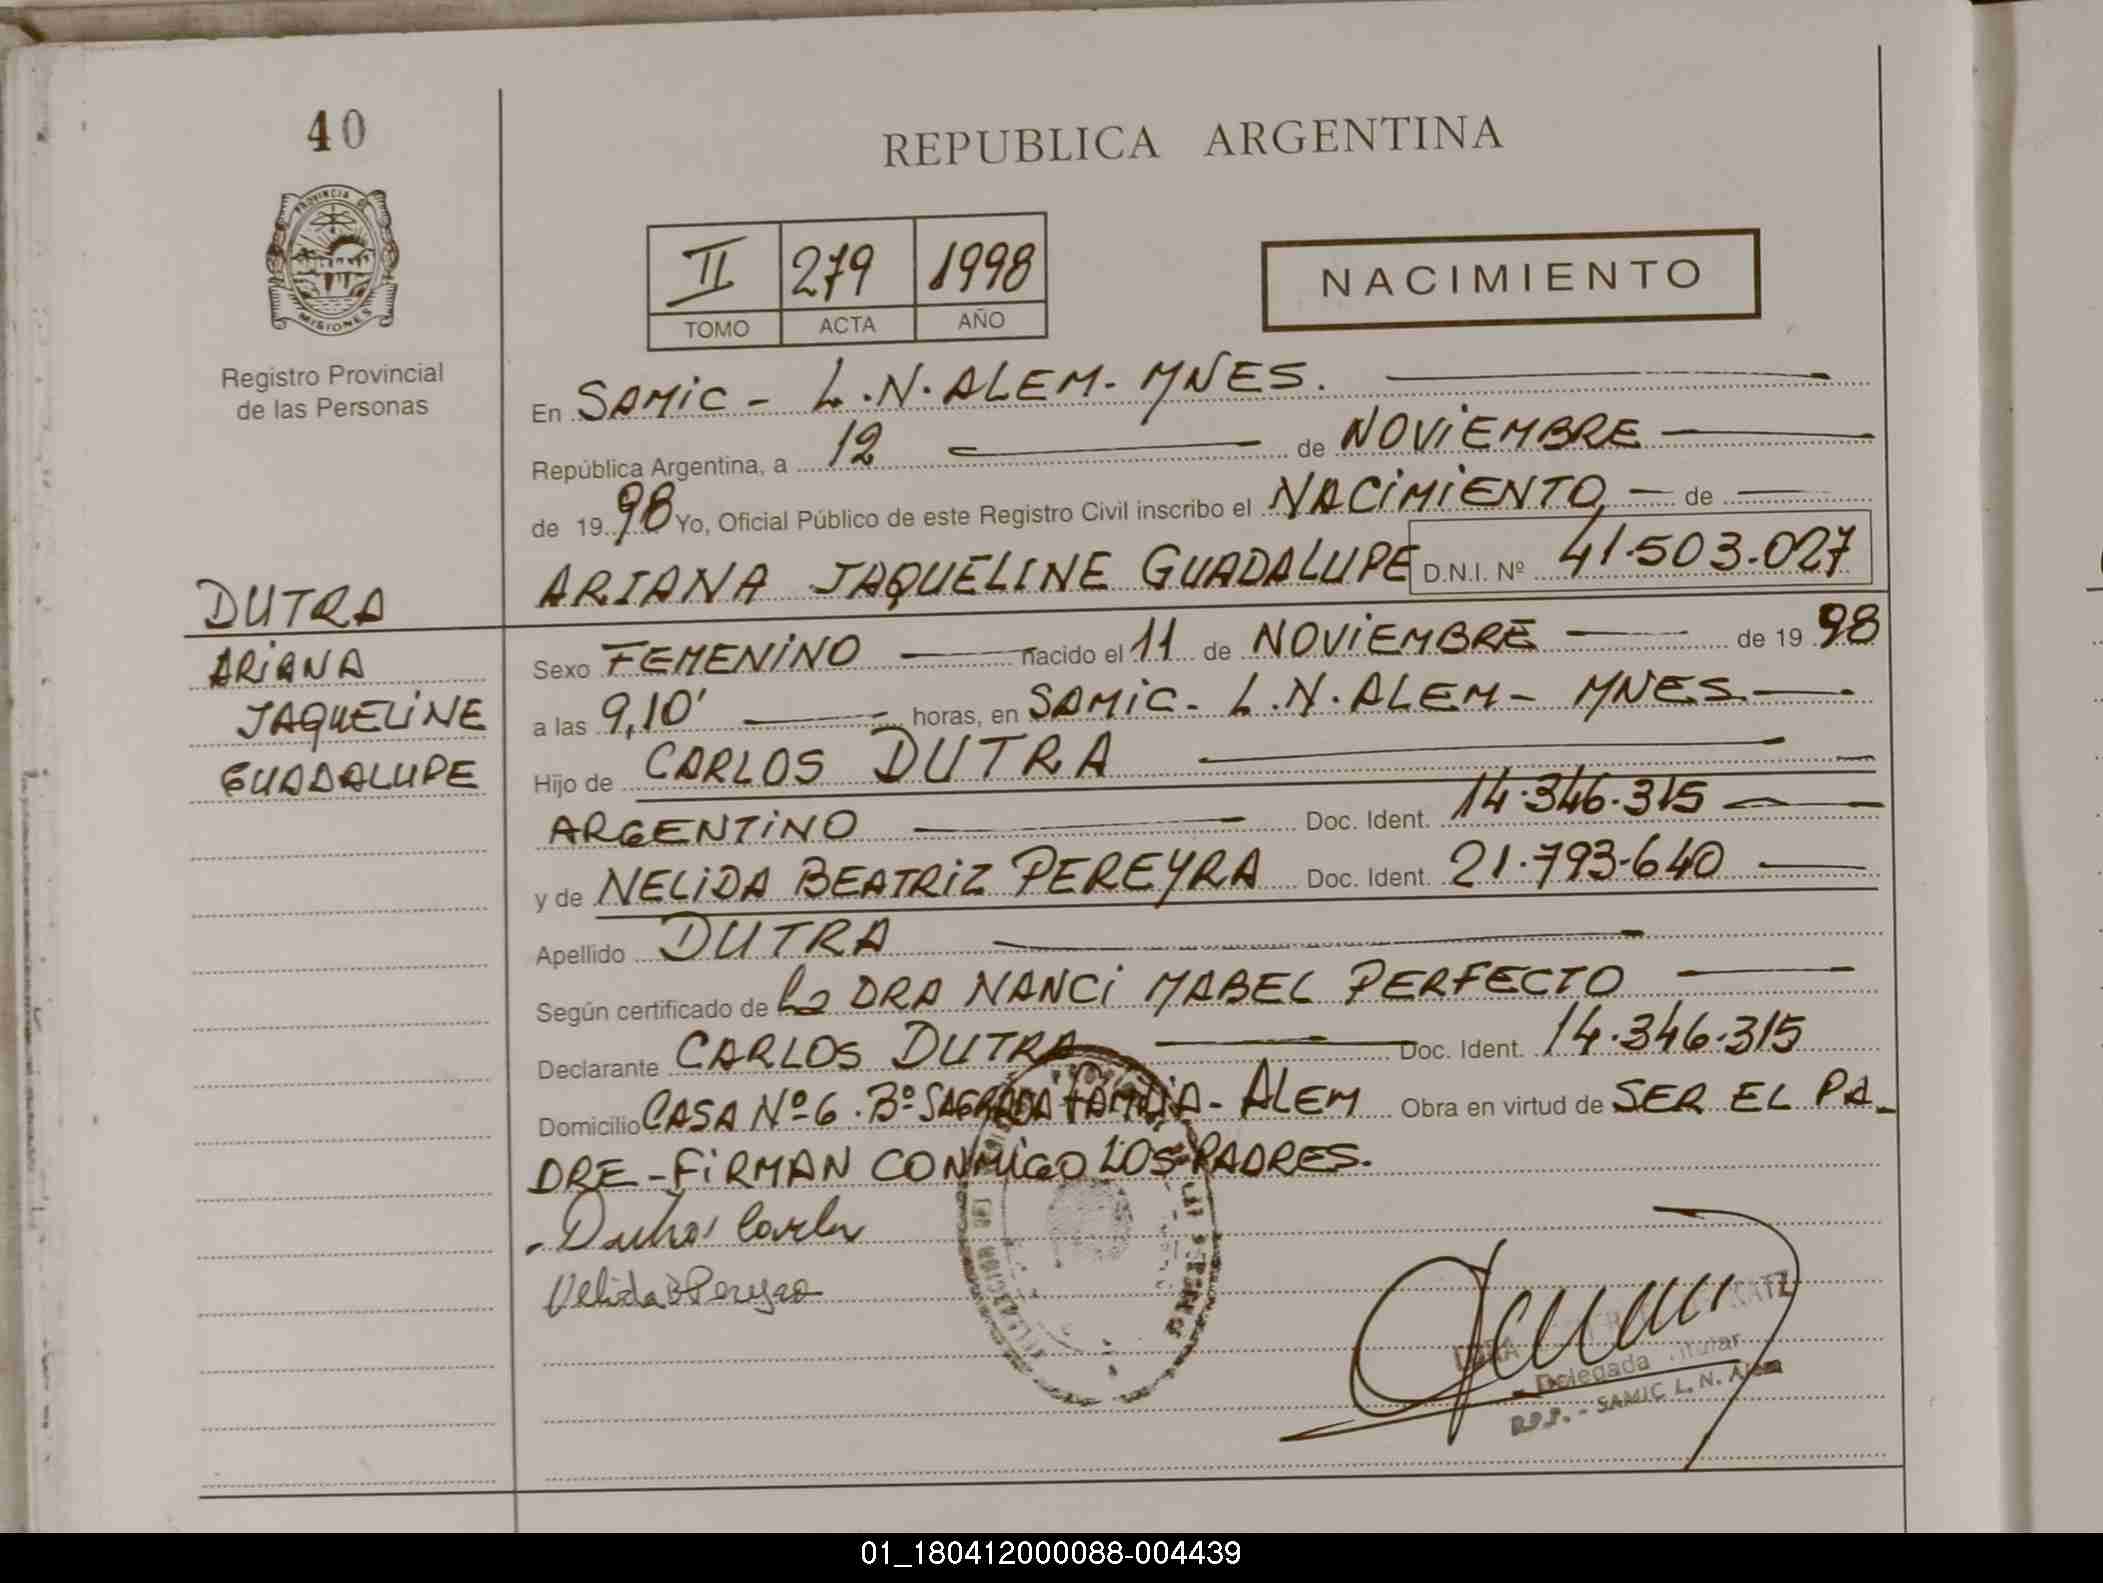 40
REPUBLICA ARGENTINA
PROVINCIA DE
MISIONES
Registro Provincial
de las Personas
II 279 1998
TOMO ACTA AÑO
NACIMIENTO
En SAMIC - L.N. ALEM - MNES.
República Argentina, a 12 de NOVIEMBRE
de 1998 Yo, Oficial Público de este Registro Civil inscribo el NACIMIENTO, de
ARIANA JAQUELINE GUADALUPE D.N.I. Nº 41.503.027
DUTRA
ARIANA
JAQUELINE
GUADALUPE
Sexo FEMENINO nacido el 11 de NOVIEMBRE de 1998
a las 9,10' horas, en SAMIC - L.N. ALEM - MNES.
Hijo de CARLOS DUTRA
ARGENTINO Doc. Ident. 14.346.315
y de NELIDA BEATRIZ PEREYRA Doc. Ident. 21.793.640
Apellido DUTRA
Según certificado de La DRA NANCI MABEL PERFECTO
Declarante CARLOS DUTRA Doc. Ident. 14.346.315
Domicilio CASA Nº 6 . Bº SAGRADA FAMILIA - ALEM Obra en virtud de SER EL PA-
DRE - FIRMAN CONMIGO LOS PADRES.
- Dutra Carlos
Nelida B Pereyra
KATZ
Delegada Titular
R.P.P. - SAMIC L. N. Alem
01_180412000088-004439